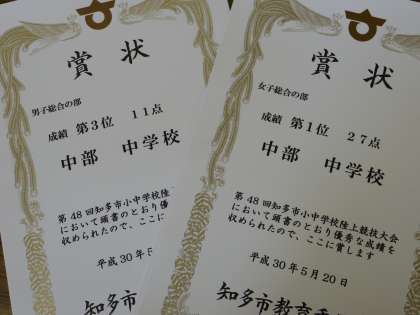 賞状
男子総合の部
成績 第3位 11点
中部 中学校
第48回知多市小中学校陸
において頭書のとおり優
収められたので、ここに
平成30年5
知多市
賞状
女子総合の部
成績 第1位 27点
中部 中学校
第48回知多市小中学校陸上競技大会
において頭書のとおり優秀な成績を
収められたので、ここに賞します
平成30年5月20日
知多市教育委